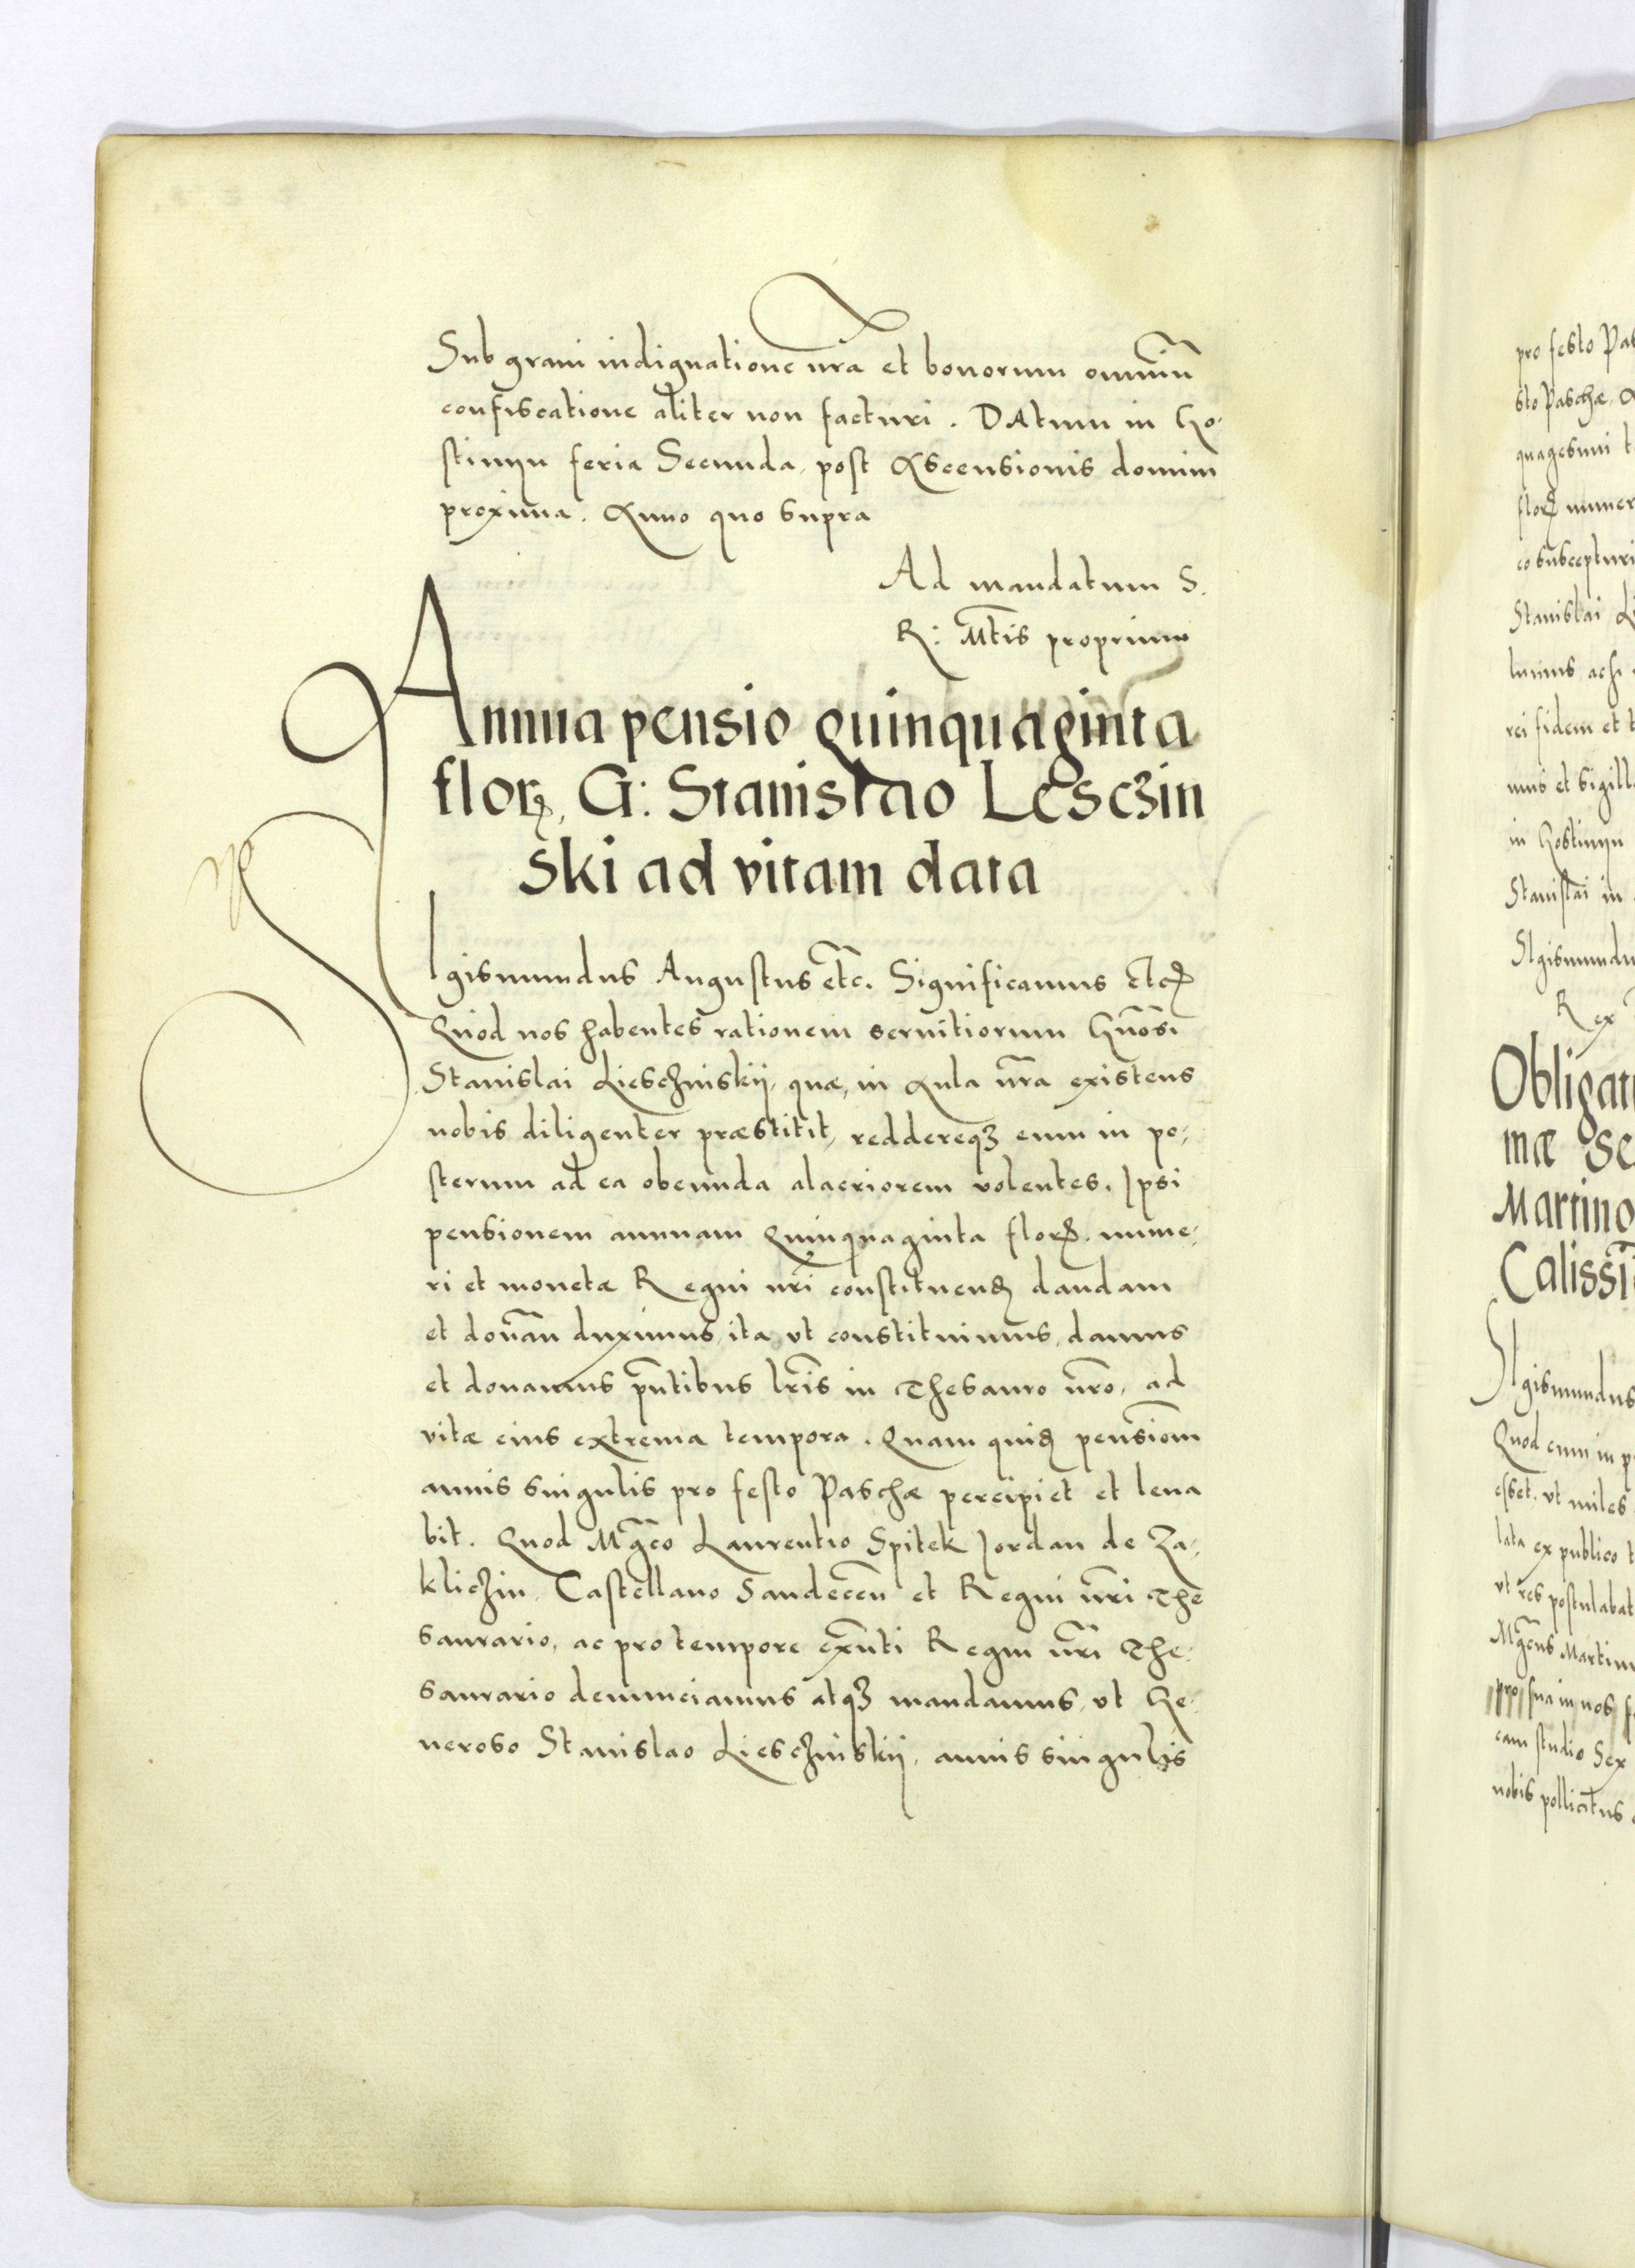 Sub graui indignatione nra et bonorum omniũ
confiscatione aliter non facturi. DAtum in Go-
stinyn feria Secunda, post Ascensionis domini
proxima. Anno quo supra
Ad mandatum S.
R: Mt̃is proprium
Annua pensio quinquaginta
floꝝ, G: Stanislao Lesczin
ski ad vitam data
SIgismundus Augustus etc̃. Significamus etcꝝ
Quod nos habentes rationem seruitiorum Gñosi
Stanislai Liesczinskij, quæ, in Aula nr̃a existens
nobis diligenter præstitit, reddereqꝫ eum in po-
sterum ad ea obeunda alacriorem volentes. Ipsi
pensionem annuam Quinquaginta floꝝ. nume-
ri et monetæ Regni nr̃i constituenꝸ dandam
et donãn duximus, ita vt constituimus, damus
et donamus pñtibus lr̃is in Thesauro nr̃o, ad
vitæ eius extrema tempora. Quam quiꝸ pensiõm
annis singulis pro festo Paschæ percipiet et leua
bit. Quod Mg̃co Laurentio Spitek Jordan de Za-
kliczin, Castellano Sandecẽn et Regni nr̃i The
saurario, ac pro tempore ex̃nti Regni nr̃i The-
saurario denunciamus atqꝫ mandamus, vt Ge-
neroso Stanislao Liesczinskij, annis singulis
pro festo Pas
sto Paschæ, A
quagesimi
floꝝ numer
eo suscepturi
Stanislai Li
rei fidem et t
mus et sigill
in Gostinyn
Stanislai in
SIgismundu
Rex
Obligati
mæ se
Martino
Calissi
SIgismundus
Quod cum in p
esset, vt miles
lata ex publico t
vt res postulabat
Mg̃cus Martinu
pro sua in nos f
eam studio Sex
nobis pollicitus